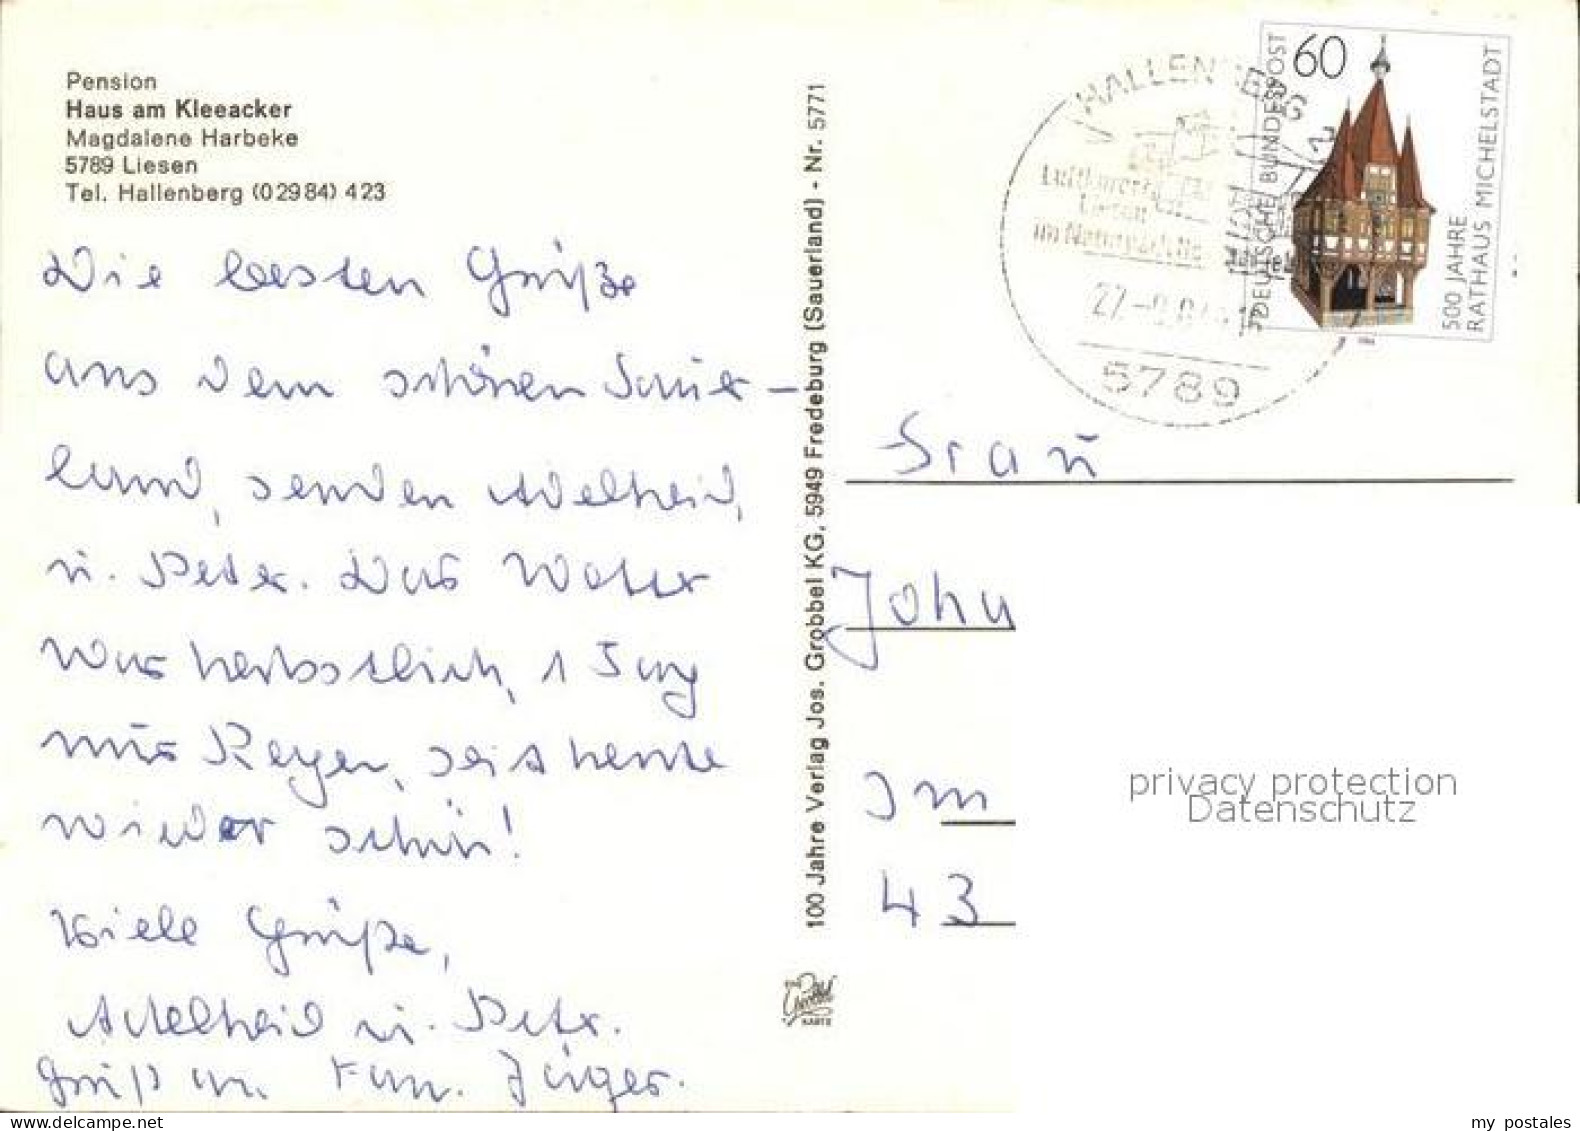 Pension
Haus am Kleeacker
Magdalene Harbeke
5789 Liesen
Tel. Hallenberg (02984) 423
Die besten Grüße
aus dem schönen Sauer-
land, senden Adelheid,
u. Peter. Das Wetter
war herbstlich, 1 Tag
nur Regen, seit heute
wieder schön!
Viele Grüße,
Adelheid u. Peter.
Gruß an Fam. Jäger.
100 Jahre Verlag Jos. Grobbel KG, 5949 Fredeburg (Sauerland) - Nr. 5771
Grobbel
KARTE
HALLENBERG
Luftkurort
Liesen
im Naturpark
5789
60
DEUTSCHE BUNDESPOST
500 JAHRE
RATHAUS MICHELSTADT
Frau
John
Im
43
privacy protection
Datenschutz
my postales